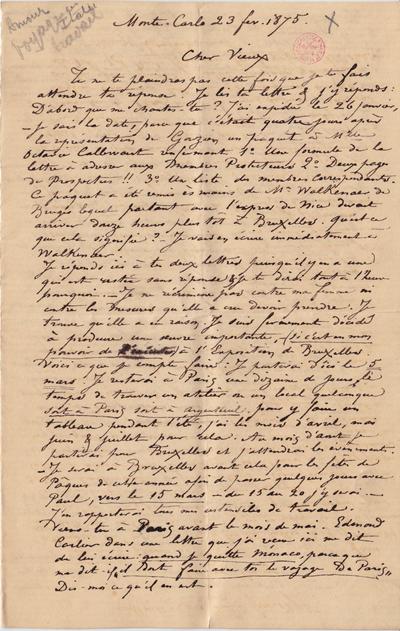 Monte-Carlo 23 fev. 1875.
Cher Vieux
Tu ne te plaindras pas cette fois que je te fais
attendre ta réponse. Je lis ta lettre & j'y réponds:
D'abord que me chantes-tu? J'ai expédié le 26 janvier,
- Je sais la date, parce que c'était quatre jours après
la représentation de un paquet à Mr
Octave renfermant 1° Une formule de la
lettre à adresser aux Membres Protecteurs 2° Deux pages
de Prospectus !! 3° Une liste des membres correspondants.
Ce paquet a été remis ès mains de Mr Walkenaer de
Bruges lequel partant avec l'express de Nice devait
arriver douze heures plus tôt à Bruxelles. Qu'est-ce
que cela signifie? Je vais écrire immédiatement à
Walkenaer.
Je réponds ici à tes deux lettres puisqu'il y en a une
qui est restée sans réponse & je te dirai tout à l'heure
pourquoi. - Je ne récrimine pas contre ma femme ni
contre les mesures qu'elle a cru devoir prendre. Je
trouve qu'elle a eu raison. Je suis fermement décidé
à produire une œuvre importante, (si c'est en mon
pouvoir de à l'Exposition de Bruxelles.
Voici ce que je compte faire. Je partirai d'ici le 5
mars. Je resterai à Paris une dizaine de jours, le
temps de trouver un atelier ou un local quelconque
soit à Paris soit à Argenteuil, pour y faire un
tableau pendant l'été, j'ai les mois d'avril, mai
juin & juillet pour cela. Au mois d'août je
partirai pour Bruxelles et j'attendrai les événements.
- Je serai à Bruxelles avant cela pour les fêtes de
Pâques de cette année afin de passer quelques jours avec
Paul, vers le 15 mars - de 15 au 20 j'y serai. -
J'en rapporterai tous mes ustensiles de travail.
Viens-tu à Paris avant le mois de mai. Edmond
Carlier dans une lettre que j'ai reçue ici me dit
de lui écrire quand je quitte Monaco, parce que
me dit-il, il doit faire avec toi le voyage De Paris"
Dis-moi ce qu'il en est.